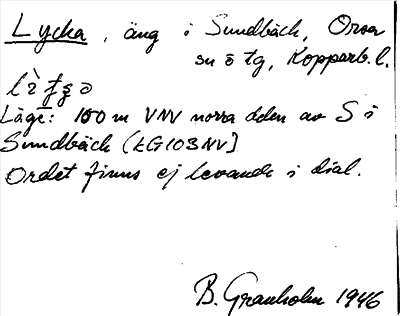 Lycka, äng i Sundbäck, Orsa
sn ö tg, Kopparb. l.
Läge: 100 m VNV norra dden av S i
Sundbäck (EG103NV]
Ordet finns ej levande i dial.
B. Granholm 1946